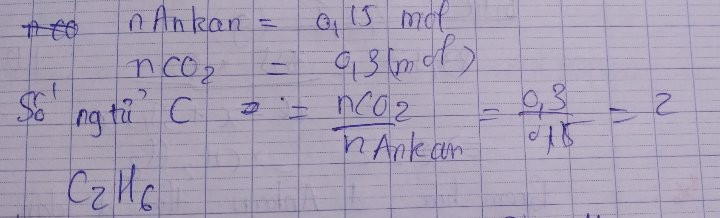 n Ankan = 0,15 mol
nCO2 = 0,3 (mol)
Số ngtử C = = nCO2 / n Ankan = 0,3 / 0,15 = 2
C2H6